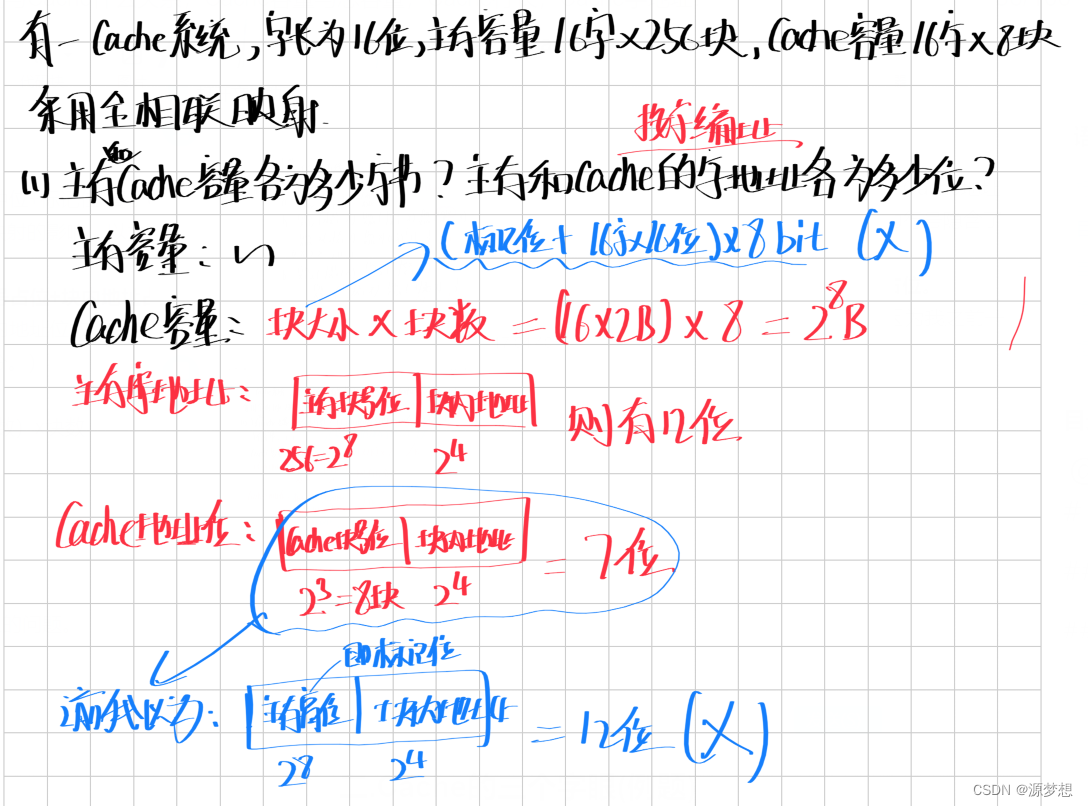 有一Cache系统,字长为16位,主存容量16字×256块,Cache容量16字×8块
采用全相联映射.
按字编址
(1)主存Cache容量各为多少字节?主存和Cache的字地址各为多少位?
主存容量:
(标记位+16字×16位)×8bit (X)
Cache容量:块大小×块数=(16×2B)×8=2^8B
主存字地址: 主存块号位 | 块内地址 则有12位
256=2^8 2^4
Cache地址位: Cache块号位 | 块内地址 =7位
2^3=8块 2^4
即标记位
之前我以为: 主存高位 | 块内地址 =12位 (X)
2^8 2^4
CSDN @源梦想